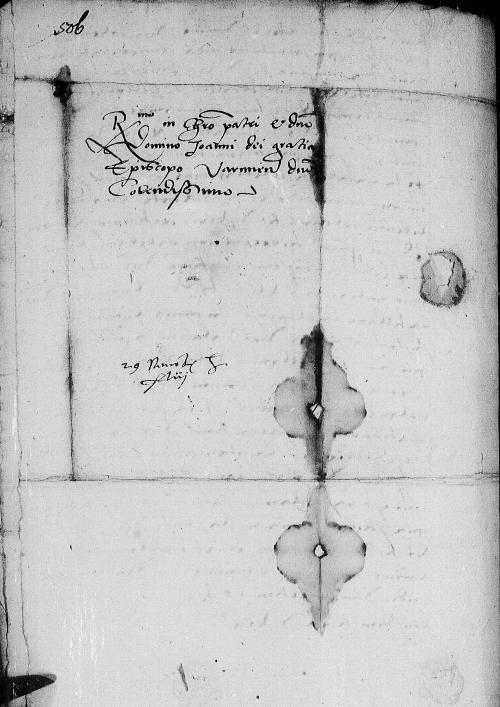 506
R^mo in Chro patri & dno
Domino Joanni dei gratia
Episcopo Varmien dno
Colendissimo
29